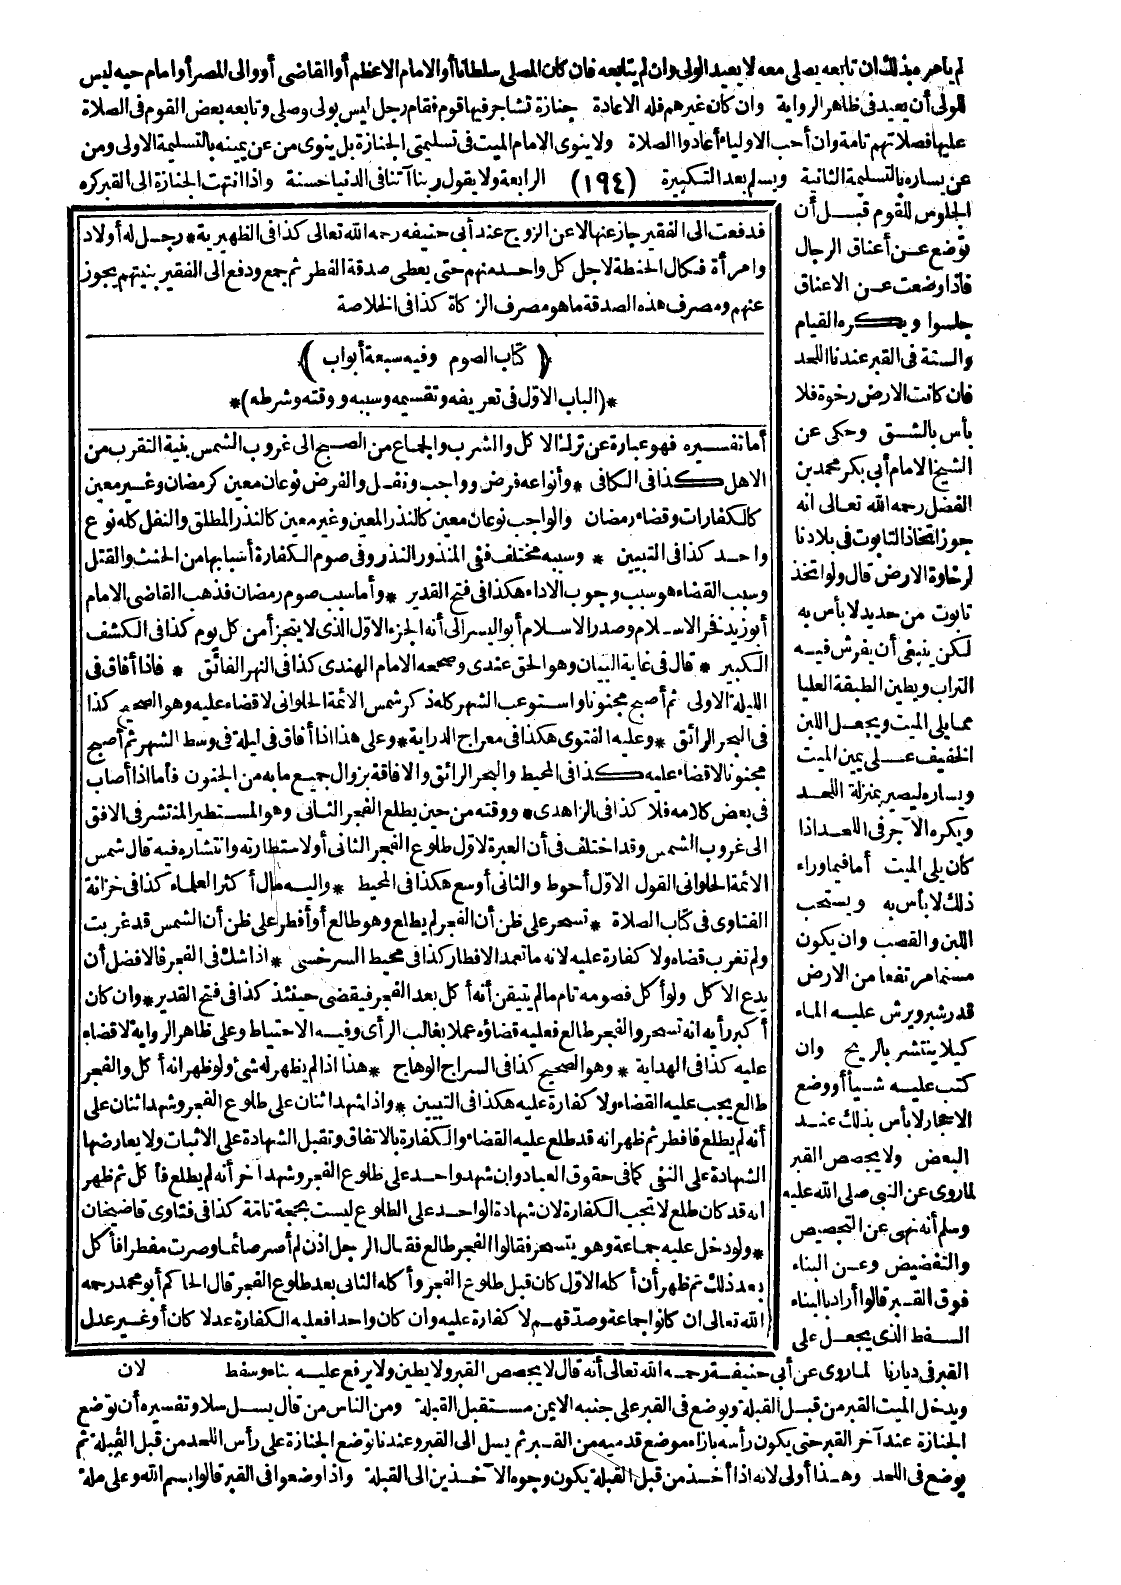 لم يأمره بذلك ان تابعه يصلى معه لا يعيد الولى وان لم يتابعه فان كان المصلى سلطانا أو الامام الاعظم أو القاضى أو والى المصر أو امام حيه ليس
للولى أن يعيد فى ظاهر الرواية وان كان غيرهم فله الاعادة جنازة تشاجر فيها قوم فقام رجل ليس بولى وصلى وتابعه بعض القوم فى الصلاة
عليها فصلاتهم تامة وان أحب الاولياء أعادوا الصلاة ولا ينوى الامام الميت فى تسليمتى الجنازة بل ينوى من عن يمينه بالتسليمة الاولى ومن
عن يساره بالتسليمة الثانية ويسلم بعد التكبيرة (١٩٤) الرابعة ولا يقول ربنا آتنا فى الدنيا حسنة واذا انتهت الجنازة الى القبر كره
الجلوس للقوم قبل أن
توضع عن أعناق الرجال
فاذا وضعت عن الاعناق
جلسوا ويكره القيام
والسنة فى القبر عندنا اللحد
فان كانت الارض رخوة فلا
بأس بالشق وحكى عن
الشيخ الامام أبى بكر محمد بن
الفضل رحمه الله تعالى انه
جوز اتخاذ التابوت فى بلادنا
لرخاوة الارض قال ولو اتخذ
تابوت من حديد لا بأس به
لكن ينبغى أن يفرش فيه
التراب ويطين الطبقة العليا
مما يلى الميت ويجعل اللبن
الخفيف على يمين الميت
ويساره ليصير بمنزلة اللحد
ويكره الآجر فى اللحد اذا
كان يلى الميت أما فيما وراء
ذلك لا بأس به ويستحب
اللبن والقصب وان يكون
مسنما مرتفعا من الارض
قدر شبر ويرش عليه الماء
كيلا ينتشر بالريح وان
كتب عليه شيأ أو وضع
الاحجار لا بأس بذلك عند
البعض ولا يجصص القبر
لما روى عن النبى صلى الله عليه
وسلم أنه نهى عن التجصيص
والتفضيض وعن البناء
فوق القبر قالوا أراد بالبناء
السفط الذى يجعل على
القبر فى ديارنا لما روى عن أبى حنيفة رحمه الله تعالى أنه قال لا يجصص القبر ولا يطين ولا يرفع عليه بناء وسفط لان
ويدخل الميت القبر من قبل القبلة ويوضع فى القبر على جنبه الايمن مستقبل القبلة ومن الناس من قال يسل سلا وتفسيره أن توضع
الجنازة عند آخر القبر حتى يكون رأسه بازاء موضع قدميه من القبر ثم يسل الى القبر وعندنا توضع الجنازة على رأس اللحد من قبل القبلة ثم
يوضع فى اللحد وهذا أولى لانه اذا أخذ من قبل القبلة يكون وجوه الآخذين الى القبلة واذا وضعوا فى القبر قالوا بسم الله وعلى ملة
فدفعت الى الفقير جاز عنها لا عن الزوج عند أبى حنيفة رحمه الله تعالى كذا فى الظهيرية * رجل له أولاد
وامرأة فكال الحنطة لاجل كل واحد منهم حتى يعطى صدقة الفطر ثم جمع ودفع الى الفقير بنيتهم يجوز
عنهم ومصرف هذه الصدقة ما هو مصرف الزكاة كذا فى الخلاصة
﴿ كتاب الصوم وفيه سبعة أبواب ﴾
*(الباب الاول فى تعريفه وتقسيمه وسببه ووقته وشرطه)*
أما تفسيره فهو عبارة عن ترك الاكل والشرب والجماع من الصبح الى غروب الشمس بنية التقرب من
الاهل كذا فى الكافى * وأنواعه فرض وواجب ونفل والفرض نوعان معين كرمضان وغير معين
كالكفارات وقضاء رمضان والواجب نوعان معين كالنذر المعين وغير معين كالنذر المطلق والنفل كله نوع
واحد كذا فى التبيين * وسببه مختلف ففى المنذور النذر وفى صوم الكفارة أسبابها من الحنث والقتل
وسبب القضاء هو سبب وجوب الاداء هكذا فى فتح القدير * وأما سبب صوم رمضان فذهب القاضى الامام
أبو زيد فخر الاسلام وصدر الاسلام أبو اليسر الى أنه الجزء الاول الذى لا يتجزأ من كل يوم كذا فى الكشف
الكبير * قال فى غاية البيان وهو الحق عندى وصححه الامام الهندى كذا فى النهر الفائق * فاذا أفاق فى
الليلة الاولى ثم أصبح مجنونا واستوعب الشهر كله ذكر شمس الائمة الحلوانى لا قضاء عليه وهو الصحيح كذا
فى البحر الرائق * وعليه الفتوى هكذا فى معراج الدراية * وعلى هذا اذا أفاق فى ليلة فى وسط الشهر ثم أصبح
مجنونا لا قضاء عليه كذا فى المحيط والبحر الرائق والافاقة بزوال جميع ما به من الجنون فأما اذا أصاب
فى بعض كلامه فلا كذا فى الزاهدى * ووقته من حين يطلع الفجر الثانى وهو المستطير المنتشر فى الافق
الى غروب الشمس وقد اختلف فى أن العبرة لاول طلوع الفجر الثانى أو لاستطارته وانتشاره فيه قال شمس
الائمة الحلوانى القول الاول أحوط والثانى أوسع هكذا فى المحيط * واليه مال أكثر العلماء كذا فى خزانة
الفتاوى فى كتاب الصلاة * تسحر على ظن أن الفجر لم يطلع وهو طالع أو أفطر على ظن أن الشمس قد غربت
ولم تغرب قضاه ولا كفارة عليه لانه ما تعمد الافطار كذا فى محيط السرخسى * اذا شك فى الفجر فالافضل أن
يدع الاكل ولو أكل فصومه تام ما لم يتيقن أنه أكل بعد الفجر فيقضى حينئذ كذا فى فتح القدير * وان كان
أكبر رأيه انه تسحر والفجر طالع فعليه قضاؤه عملا بغالب الرأى وفيه الاحتياط وعلى ظاهر الرواية لا قضاء
عليه كذا فى الهداية * وهو الصحيح كذا فى السراج الوهاج * هذا اذا لم يظهر له شئ ولو ظهر انه أكل والفجر
طالع يجب عليه القضاء ولا كفارة عليه هكذا فى التبيين * واذا شهد اثنان على طلوع الفجر وشهد اثنان على
أنه لم يطلع فافطر ثم ظهر انه قد طلع عليه القضاء والكفارة بالاتفاق وتقبل الشهادة على الاثبات ولا يعارضها
الشهادة على النفى كما فى حقوق العباد وان شهد واحد على طلوع الفجر وشهد آخر أنه لم يطلع فأكل ثم ظهر
انه قد كان طلع لا تجب الكفارة لان شهادة الواحد على الطلوع ليست بحجة تامة كذا فى فتاوى قاضيخان
* ولو دخل عليه جماعة وهو يتسحر فقالوا الفجر طالع فقال الرجل اذن لم أصر صائما وصرت مفطرا فأكل
بعد ذلك ثم ظهر أن أكله الاول كان قبل طلوع الفجر وأكله الثانى بعد طلوع الفجر قال الحاكم أبو محمد رحمه
الله تعالى ان كانوا جماعة وصدقهم لا كفارة عليه وان كان واحدا فعليه الكفارة عدلا كان أو غير عدل